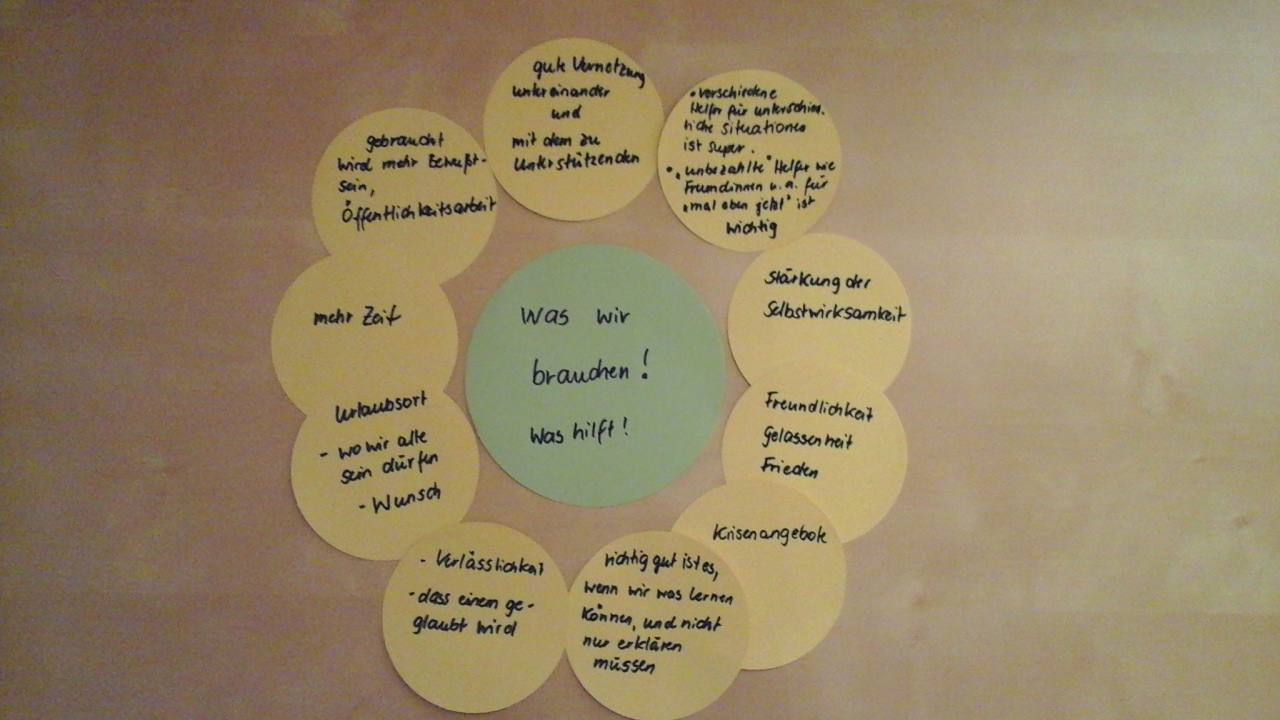 Was wir
brauchen!
Was hilft!
gute Vernetzung
untereinander
und
mit dem zu
Unterstützenden
• verschiedene
Helfer für unterschied.
liche Situationen
ist super.
• „unbezahlte" Helfer wie
Freundinnen u.a. für
„mal eben jetzt" ist
wichtig
Stärkung der
Selbstwirksamkeit
Freundlichkeit
Gelassenheit
Frieden
Krisenangebote
richtig gut ist es,
wenn wir was lernen
können, und nicht
nur erklären
müssen
- Verlässlichkeit
- dass einem ge-
glaubt wird
Urlaubsort
- wo wir alle
sein dürfen
- Wunsch
mehr Zeit
gebraucht
wird mehr Bewußt-
sein,
Öffentlichkeitsarbeit